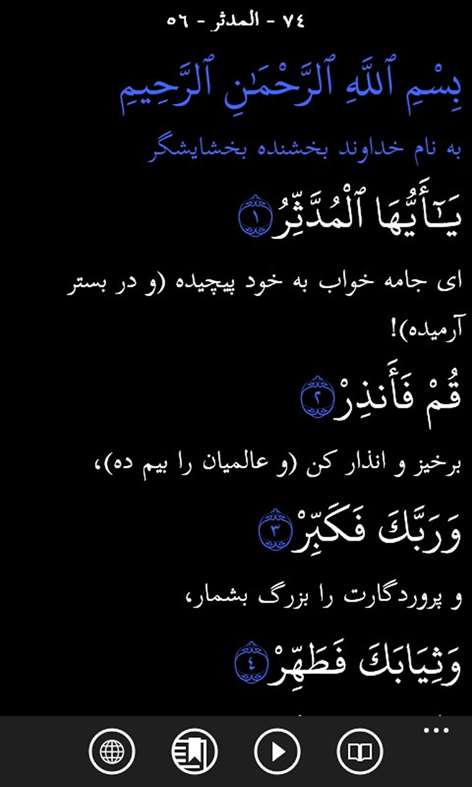 ٧٤ - المدثر - ٥٦
بِسْمِ ٱللَّهِ ٱلرَّحْمَٰنِ ٱلرَّحِيمِ
به نام خداوند بخشنده بخشایشگر
يَـٰٓأَيُّهَا ٱلْمُدَّثِّرُ ١
ای جامه خواب به خود پیچیده (و در بستر
آرمیده)!
قُمْ فَأَنذِرْ ٢
برخیز و انذار کن (و عالمیان را بیم ده)،
وَرَبَّكَ فَكَبِّرْ ٣
و پروردگارت را بزرگ بشمار،
وَثِيَابَكَ فَطَهِّرْ ٤